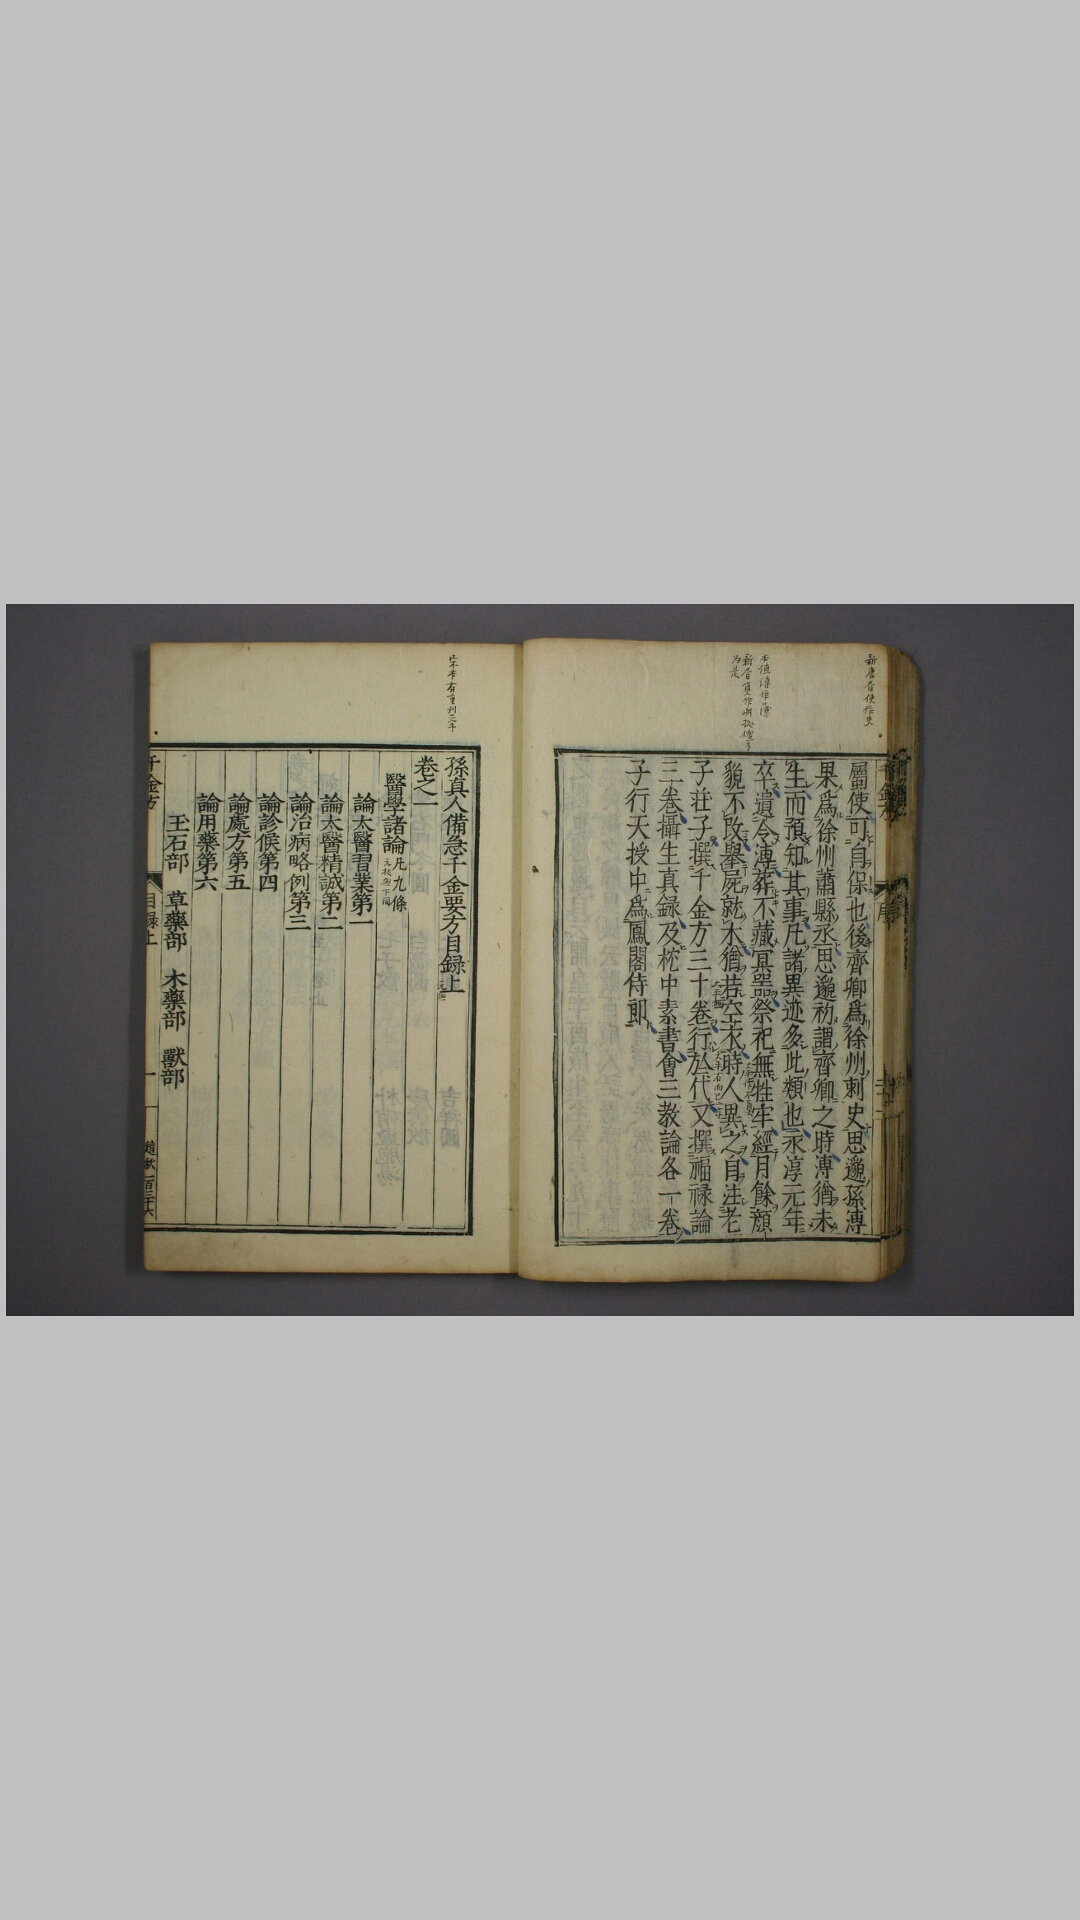 屬使可自保也後齊卿爲徐州刺史思邈孫溥
果爲徐州蕭縣丞思邈初謂齊卿之時溥猶未
生而預知其事凡諸異迹多此類也永淳元年
卒遺令薄葬不藏冥器祭祀無牲牢經月餘顔
貌不改舉屍就木猶若空衣時人異之自注老
子莊子撰千金方三十卷行於代又撰福祿論
三卷攝生真録及枕中素書會三教論各一卷
子行天授中爲鳳閣侍郎
孫真人備急千金要方目録上
卷之一
醫學諸論凡九條
論大醫習業第一
論大醫精誠第二
論治病略例第三
論診候第四
論處方第五
論用藥第六
玉石部 草藥部 木藥部 獸部
千金方 目録上 一